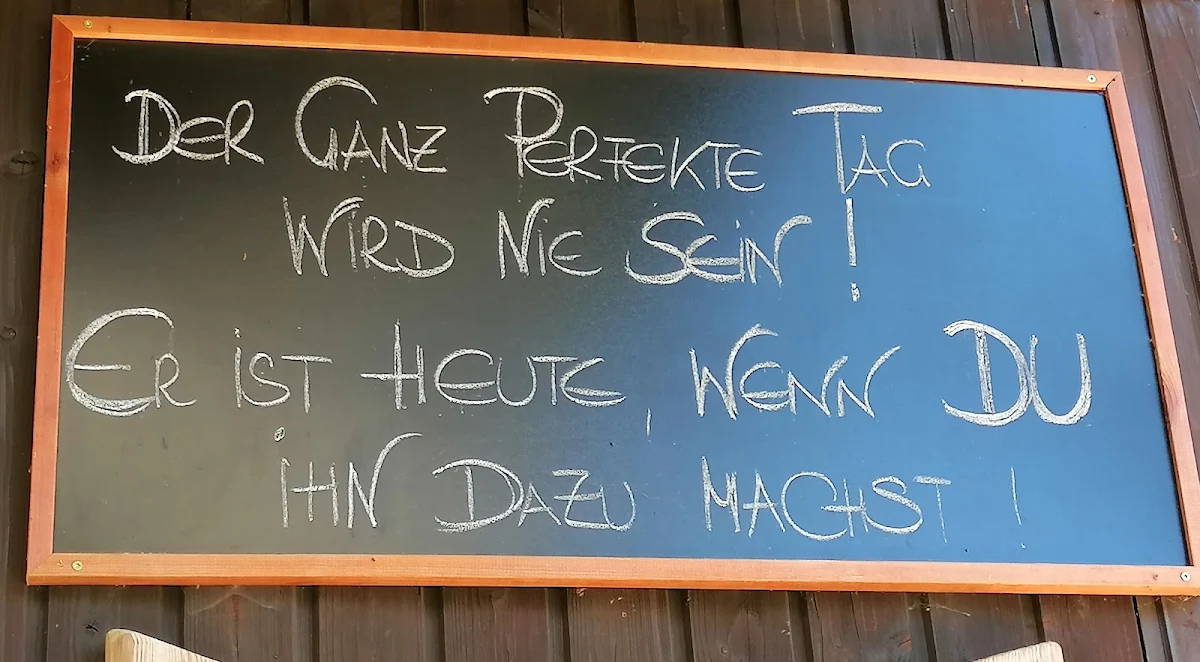 DER GANZ PERFEKTE TAG
WIRD NIE SEIN!
ER IST HEUTE, WENN DU
IHN DAZU MACHST!